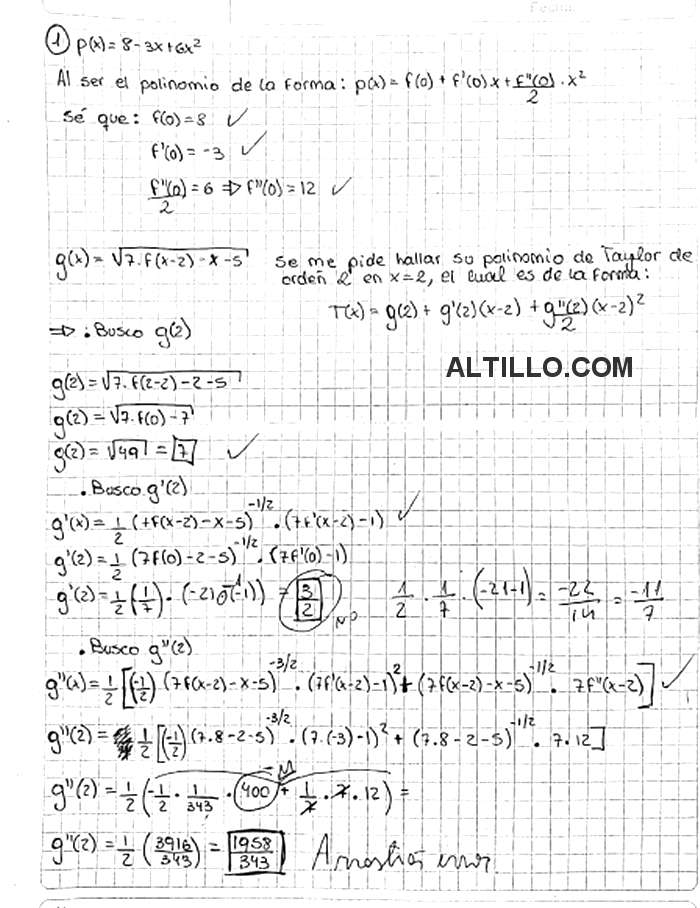 ① p(x) = 8 - 3x + 6x²
Al ser el polinomio de la forma: p(x) = f(0) + f'(0) x + f''(0)/2 · x²
Sé que: f(0) = 8 ✓
f'(0) = -3 ✓
f''(0)/2 = 6 ⇒ f''(0) = 12 ✓
g(x) = √(7·f(x-2) - x - 5) Se me pide hallar su polinomio de Taylor de
orden 2 en x=2, el cual es de la forma:
T(x) = g(2) + g'(2)(x-2) + g''(2)/2 (x-2)²
⇒ · Busco g(2)
ALTILLO.COM
g(2) = √(7·f(2-2) - 2 - 5)
g(2) = √(7·f(0) - 7)
g(2) = √49 = 7 ✓
· Busco g'(2)
g'(x) = 1/2 (7f(x-2) - x - 5)^(-1/2) · (7f'(x-2) - 1) ✓
g'(2) = 1/2 (7f(0) - 2 - 5)^(-1/2) · (7f'(0) - 1)
g'(2) = 1/2 (1/7) · = 3/2 NO 1/2 · 1/7 · (-21-1) = -22/14 = -11/7
· Busco g''(2)
g''(x) = 1/2 [(-1/2) (7f(x-2) - x - 5)^(-3/2) · (7f'(x-2) - 1)² + (7f(x-2) - x - 5)^(-1/2) · 7f''(x-2)] ✓
g''(2) = 1/2 [(-1/2) (7·8 - 2 - 5)^(-3/2) · (7·(-3) - 1)² + (7·8 - 2 - 5)^(-1/2) · 7·12]
g''(2) = 1/2 (-1/2 · 1/343 · 400 + 1/7 · 7 · 12) =
g''(2) = 1/2 (3916/343) = 1958/343 Arrastras error